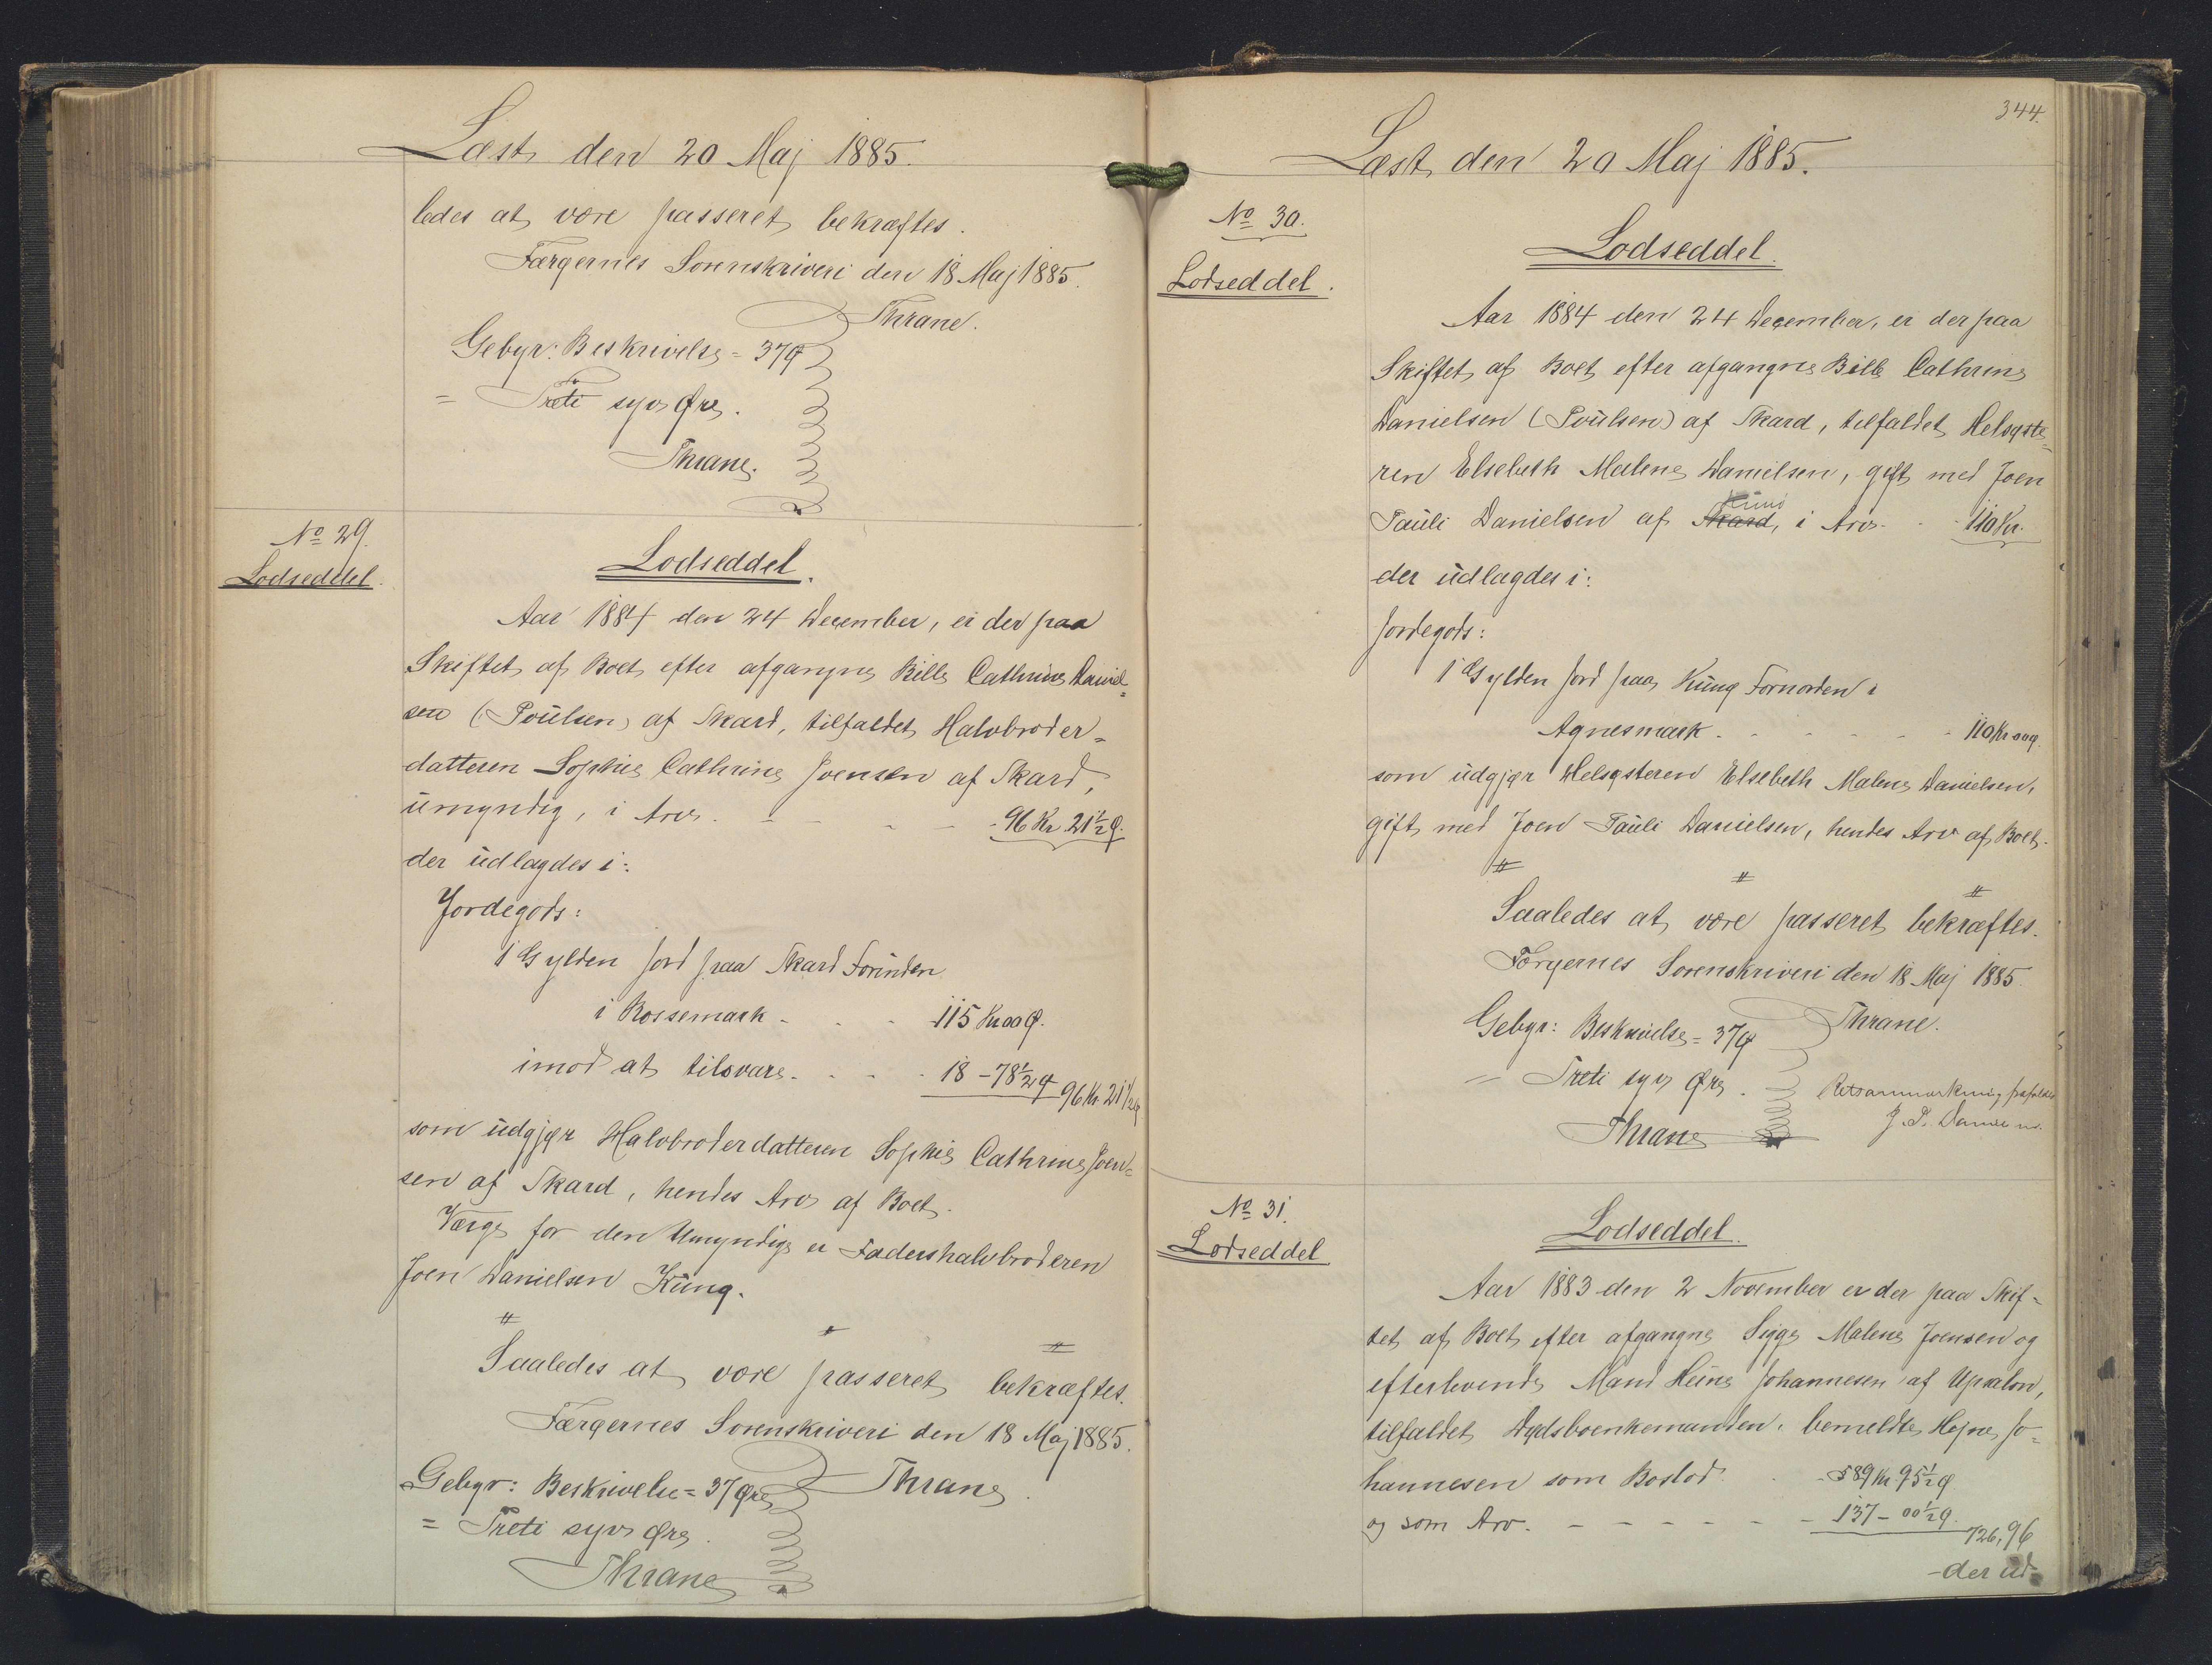 Læst den 20 Maj 1885.
ledes at være passeret bekræftes.
Færøernes Sorenskriveri den 18 Maj 1885.
Thrane.
Gebyr: Beskrivelse = 37 Ø
= Treti syv Øre.
Thrane.
No 29.
Lodseddel.
Lodseddel.
Aar 1884 den 24 December, er der paa
Skiftet af Boet efter afgangne Bille Cathrine Daniel=
sen (Poulsen) af Skard, tilfaldet Halvbroder=
datteren Sophie Cathrine Joensen af Skard,
umyndig, i Arv. - - - 96 Kr. 21½ Ø.
der udlagdes i:
Jordegods:
1 Gylden Jord paa Skard Forinden
i Rossemark - - - 115 Kr 00 Ø.
imod at tilsvare - - - 18 - 78½ Ø 96 Kr. 21½ Ø
som udgjør Halvbroderdatteren Sophie Cathrine Joen=
sen af Skard, hendes Arv af Boet.
Værge for den Umyndige er Fadershalvbroderen
Joen Danielsen Kunø.
Saaledes at være passeret bekræftes.
Færøernes Sorenskriveri den 18 Maj 1885.
Thrane.
Gebyr: Beskrivelse = 37 Øre
= Treti syv Øre.
Thrane
344.
Læst den 20 Maj 1885.
No 30.
Lodseddel.
Lodseddel.
Aar 1884 den 24 December, er der paa
Skiftet af Boet efter afgangne Bille Cathrine
Danielsen (Poulsen) af Skard, tilfaldet Helsyste=
ren Elsebeth Malene Danielsen, gift med Joen
Kunø
Pauli Danielsen af Skard, i Arv - - 110 Kr.
der udlagdes i:
Jordegods:
1 Gylden Jord paa Kunø Fornorden i
Agnesmark. - - - - - 110 Kr 00 Ø.
som udgjør Helsysteren Elsebeth Malene Danielsen,
gift med Joen Pauli Danielsen, hendes Arv af Boet.
Saaledes at være passeret bekræftes.
Færøernes Sorenskriveri den 18 Maj 1885.
Thrane.
Gebyr: Beskrivelse = 37 Ø
= Treti syv Øre.
Thrane
Retsanmærkning frafaldes
J. P. Danielsen.
No 31.
Lodseddel
Lodseddel.
Aar 1883 den 2 November er der paa Skif=
tet af Boet efter afgangne Sigge Malene Joensen og
efterlevende Mand Heine Johannesen af
tilfaldet Dødsboenkemanden, bemeldte Hejne Jo=
hannesen som Boslod. - 589 Kr. 95½ Ø
og som Arv. - - - - - - 137 - 00½ Ø. 726,96
-der ud-